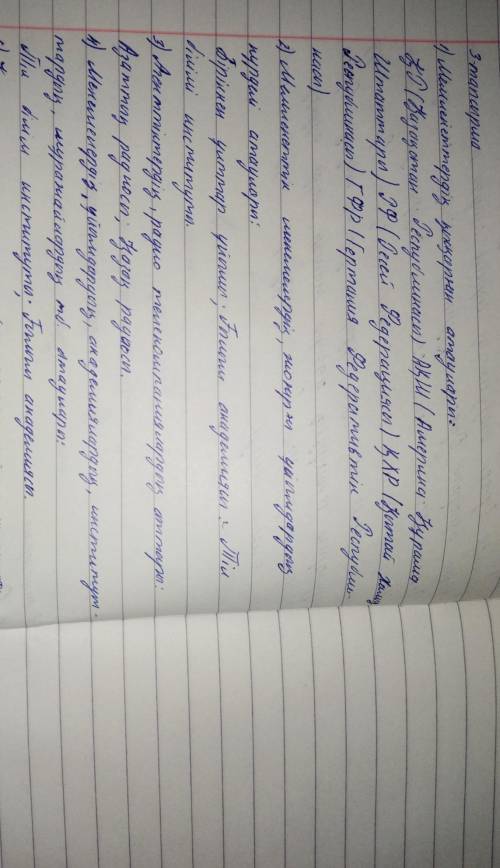 3 тапсырма
1) Мемлекеттердің қысқарған атаулары:
ҚР (Қазақстан Республикасы) АҚШ (Америка Құрама
Штаттары) РФ (Ресей Федерациясы) ҚХР (Қытай Халық
Республикасы) ГФР (Германия Федеративтік Республи-
касы)
2) Мемлекеттік мекемелердің, жоғарғы ұйымдардың
күрделі атаулары:
Біріккен ұлттар ұйымы; Ғылым академиясы; Тіл
білімі институты.
3) Агенттіктердің, радио телекомпаниялардың аттары:
Азаттық радиосы; Қазақ радиосы.
4) Мекемелердің, ұйымдардың, академиялардың, институт-
тардың, мұражайлардың т.б. атаулары:
Тіл білім институты; Ғылым академиясы.